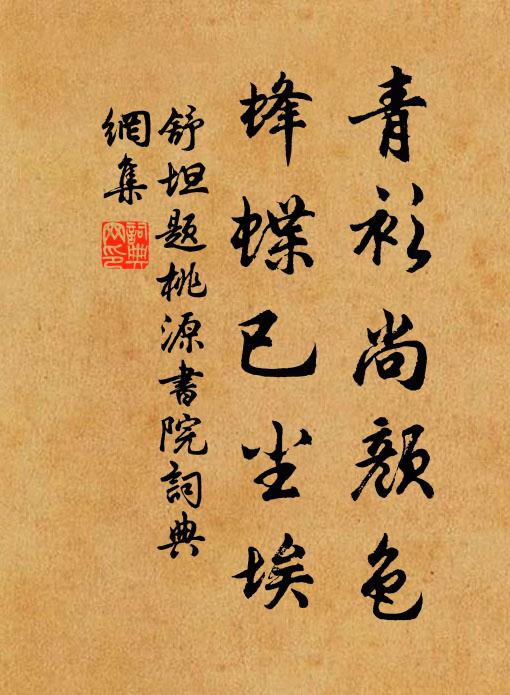 青衫尚颜色
蜂蝶已尘埃
舒坦题桃源书院词典
網集
词典
网印